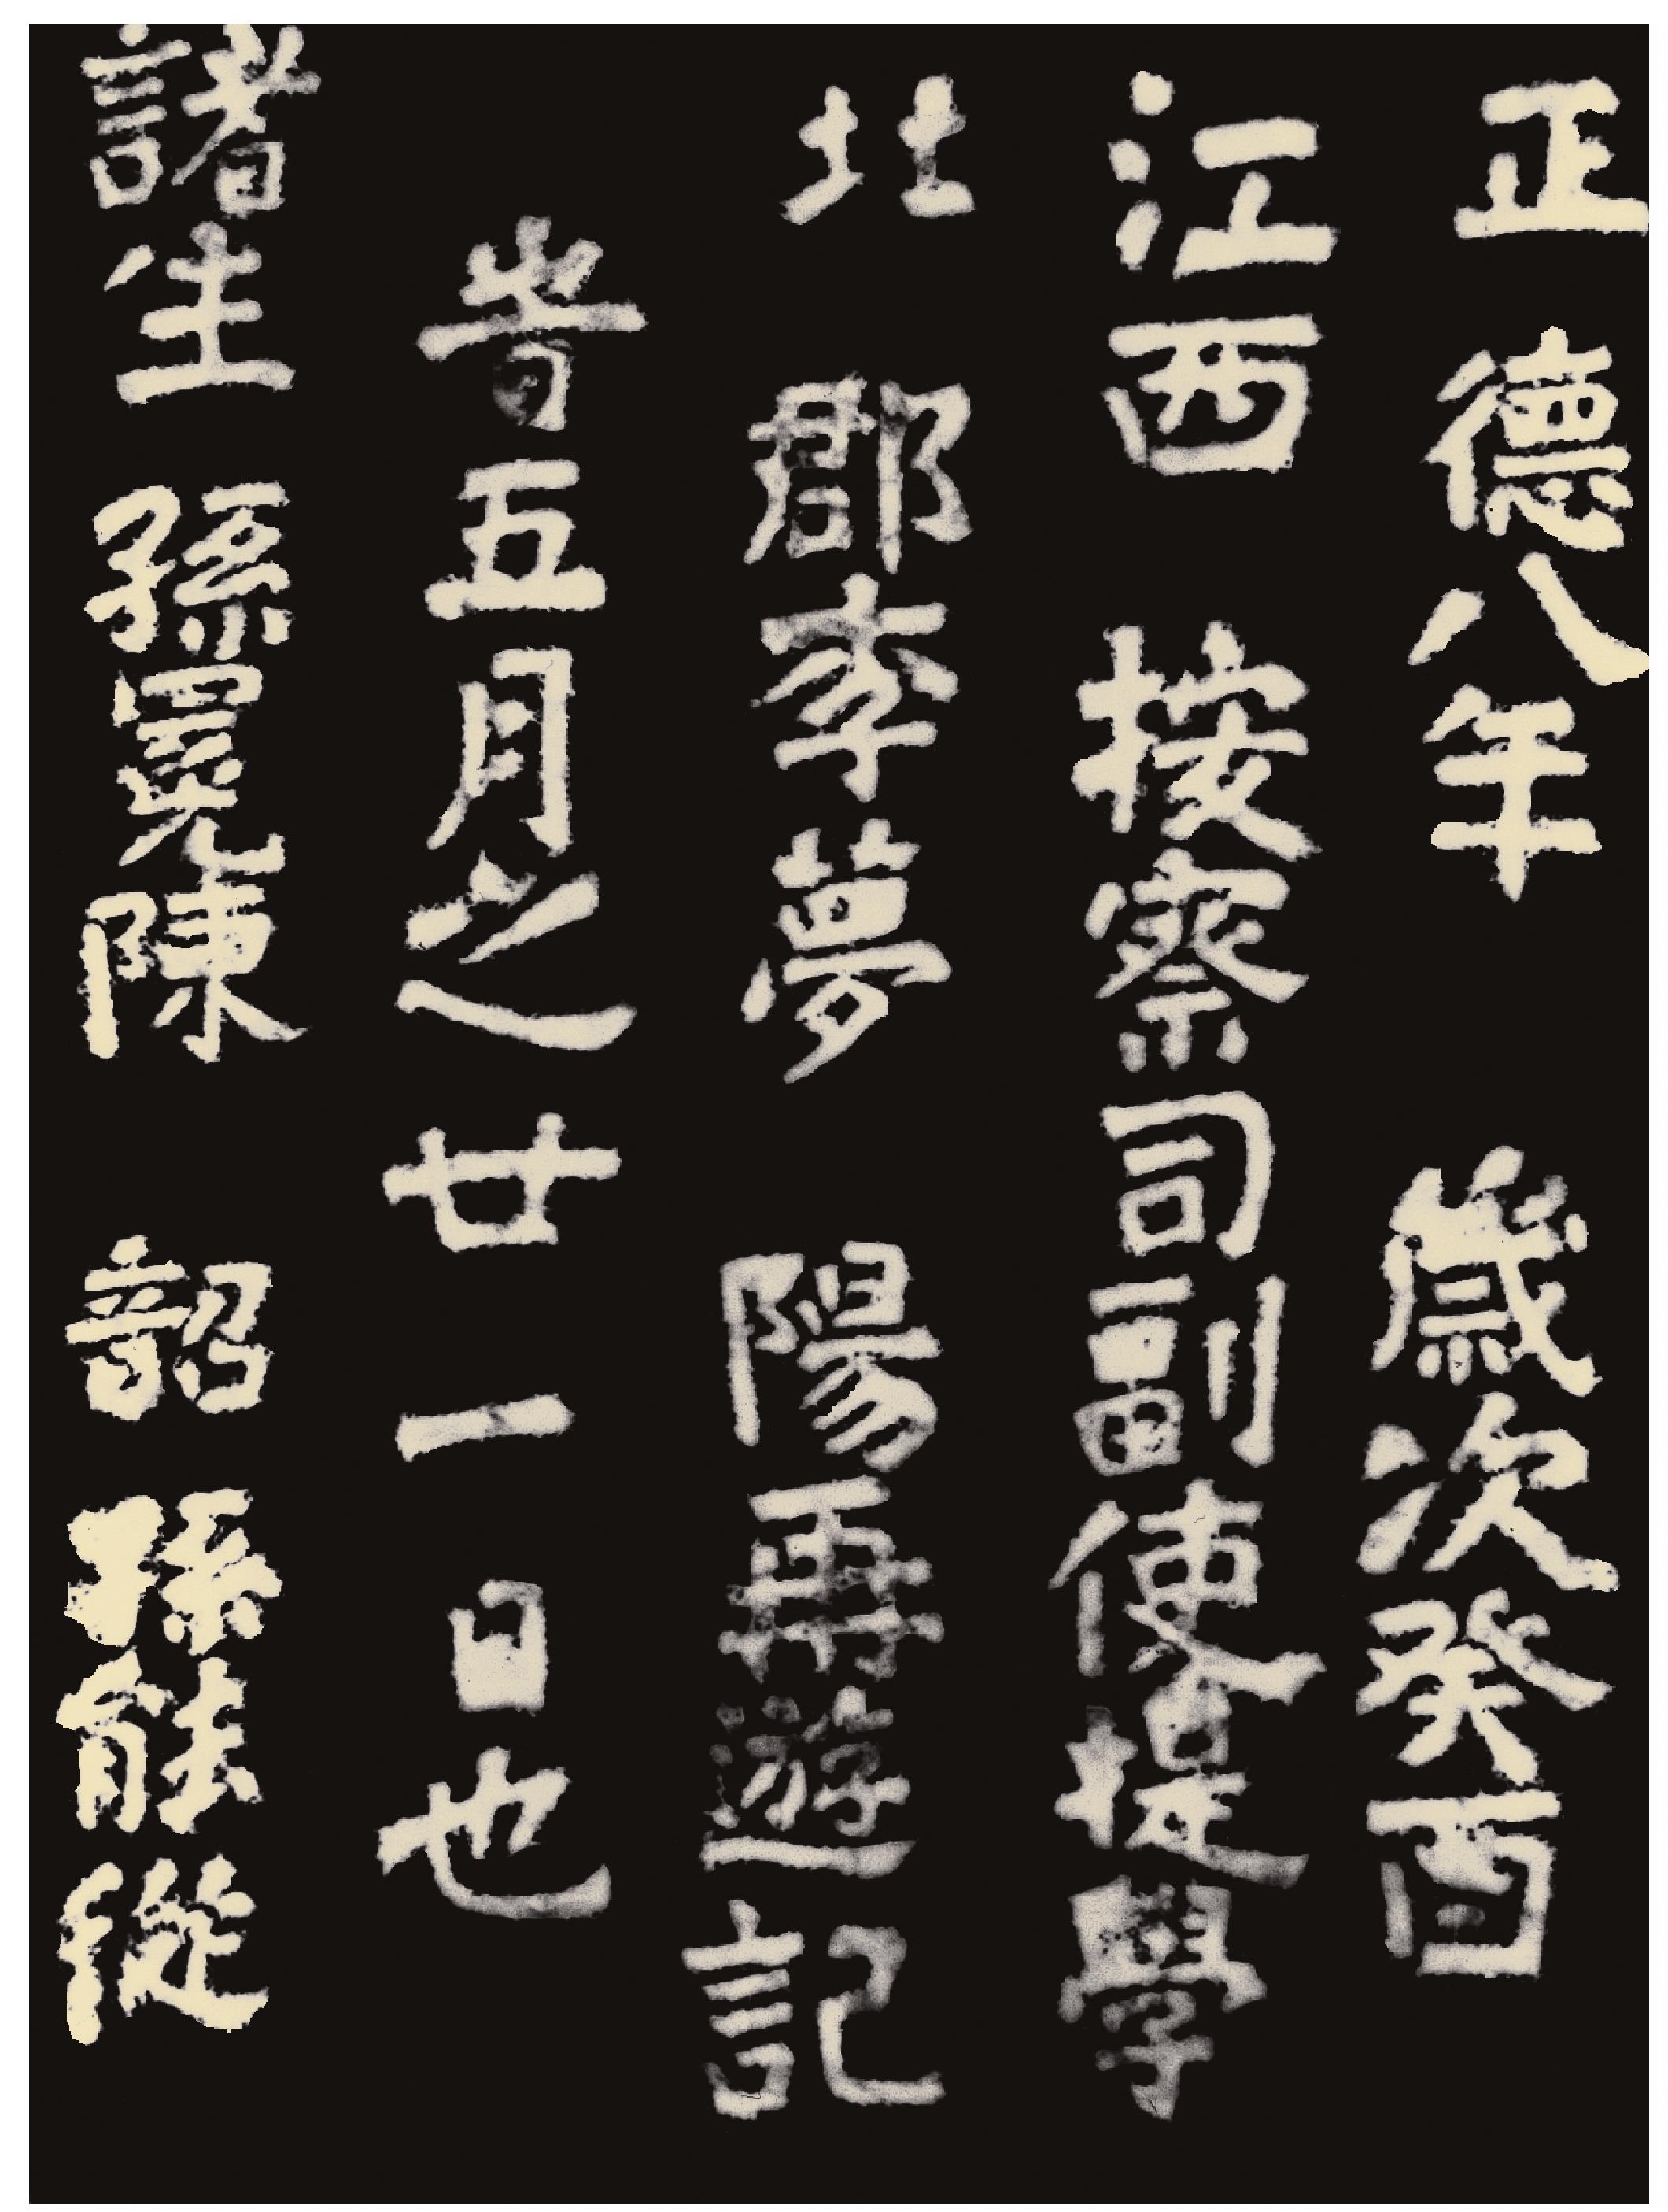 正德八年歲次癸酉
江西按察司副使提學
北郡李夢陽再遊記
旹五月之廿一日也
諸生孫冕陳韶孫能從